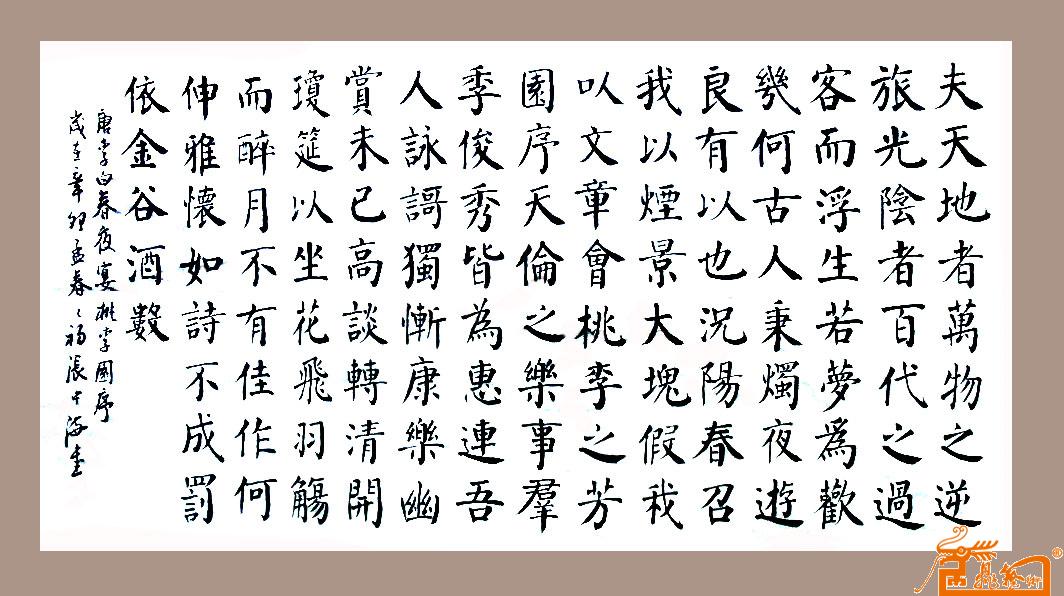 夫天地者萬物之逆
旅光陰者百代之過
客而浮生若夢爲歡
幾何古人秉燭夜遊
良有以也況陽春召
我以煙景大塊假我
以文章會桃李之芳
園序天倫之樂事羣
季俊秀皆為惠連吾
人詠謌獨慚康樂幽
賞未已高談轉清開
瓊筵以坐花飛羽觴
而醉月不有佳作何
伸雅懷如詩不成罰
依金谷酒數
唐李白春夜宴桃李園序
歲在辛卯孟春張